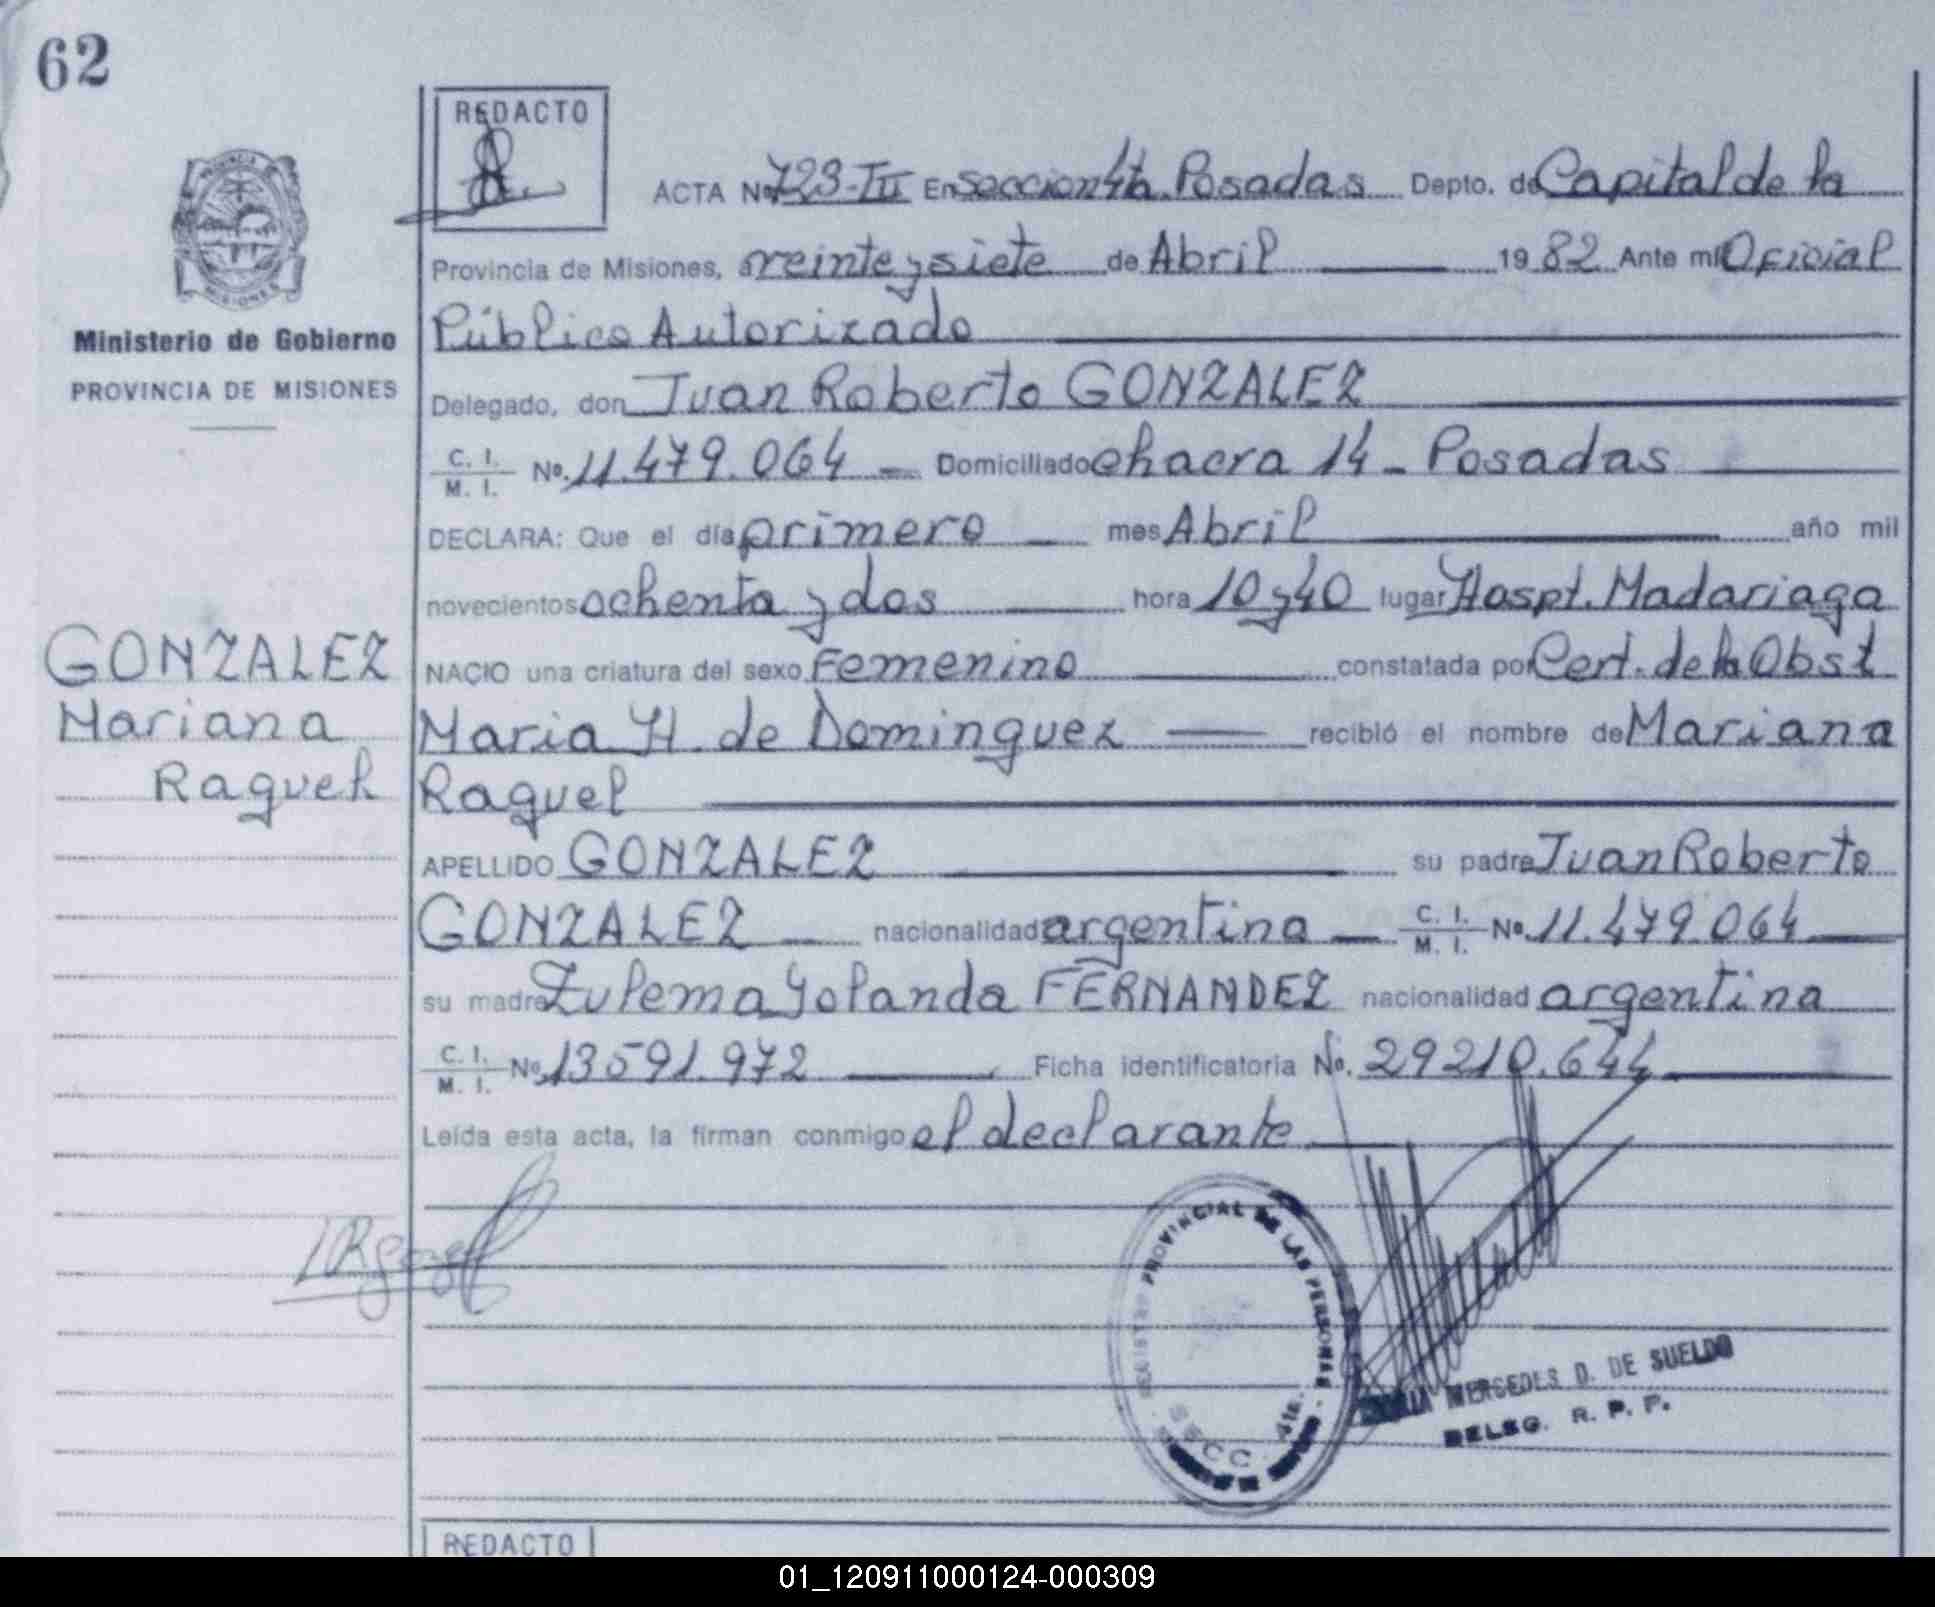 62
REDACTO
ACTA No. 723-III En sección 4ta. Posadas Depto. de Capital de la
Provincia de Misiones, a veinte y siete de Abril 1982 Ante mí Oficial
Ministerio de Gobierno
PROVINCIA DE MISIONES
Público Autorizado
Delegado, don Juan Roberto GONZALEZ
C. I. M. I. No. 11.479.064 - Domiciliado chacra 14 - Posadas
DECLARA: Que el día primero mes Abril año mil
novecientos ochenta y dos hora 10 y 40 lugar Hospt. Madariaga
GONZALEZ
Mariana
Raquel
NACIO una criatura del sexo Femenino constatada por Cert. de la Obst
Maria H. de Dominguez recibió el nombre de Mariana
Raquel
APELLIDO GONZALEZ su padre Juan Roberto
GONZALEZ nacionalidad argentina C. I. M. I. No. 11.479.064
su madre Zulema Yolanda FERNANDEZ nacionalidad argentina
C. I. M. I. No. 13591.972 Ficha identificatoria No. 29210.644
Leída esta acta, la firman conmigo el declarante
PROVINCIAL DE LAS PERSONAS
SECC 4ta.
MERCEDES D. DE SUELDO
DELEG. R. P. P.
REDACTO
01_120911000124-000309